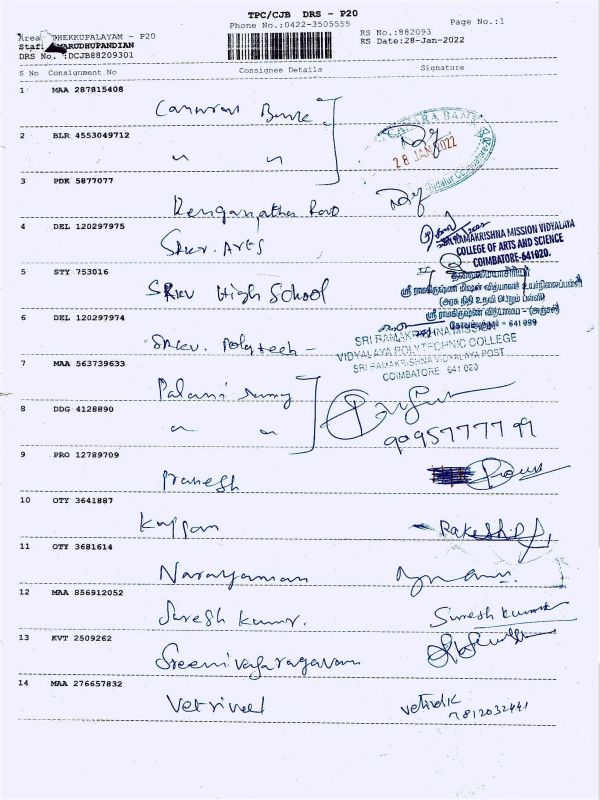 TPC/CJB DRS - P20
Phone No.:0422-3505555
Page No.:1
Area DHEKKUPALAYAM - P20
RS No.:882093
Staf: MARUDHUPANDIAN
RS Date:28-Jan-2022
DRS No. :DCJB88209301
S No Consignment No Consignee Details Signature
1 MAA 287815408
Canara Bank
CANARA BANK
2 BLR 4553049712
28 JAN 2022
〃 〃
3 PDK 5877077
Renganatha Rao
4 DEL 120297975
SRI RAMAKRISHNA MISSION VIDYALAYA
COLLEGE OF ARTS AND SCIENCE
COIMBATORE-641020.
Srkv. Arts
5 STY 753016
தலைமையாசிரியர்
ஸ்ரீ ராமகிருஷ்ண மிஷன் வித்யாலய உயர்நிலைப்பள்ளி
(அரசு நிதி உதவி பெறும் பள்ளி)
ஸ்ரீ ராமகிருஷ்ண வித்யாலய - (அஞ்சல்)
SRKV High School
6 DEL 120297974
SRI RAMAKRISHNA MISSION
VIDYALAYA POLYTECHNIC COLLEGE
SRI RAMAKRISHNA VIDYALAYA POST
COIMBATORE 641 020
Srkv. Polytech -
7 MAA 563739633
Palani Samy
8 DDG 4128890
〃 〃
9995777799
9 PRO 12789709
Prakesh
10 OTY 3641887
Kuppan
Rakesh
11 OTY 3681614
Narayanan
12 MAA 856912052
Suresh kumar.
Suresh kumar
13 KVT 2509262
Sreenivasaragavan
14 MAA 276657832
Vetrivel
7812032441